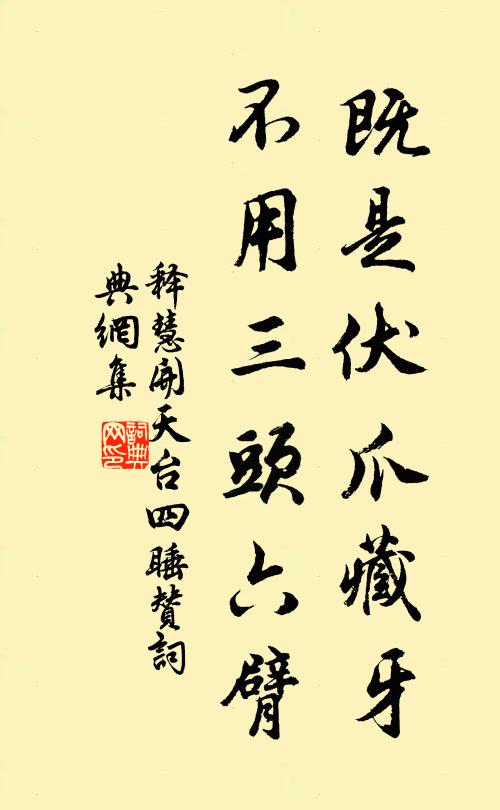 既是伏爪藏牙
不用三頭六臂
释慧開天台四睡赞詞
典網集
詞典
网印